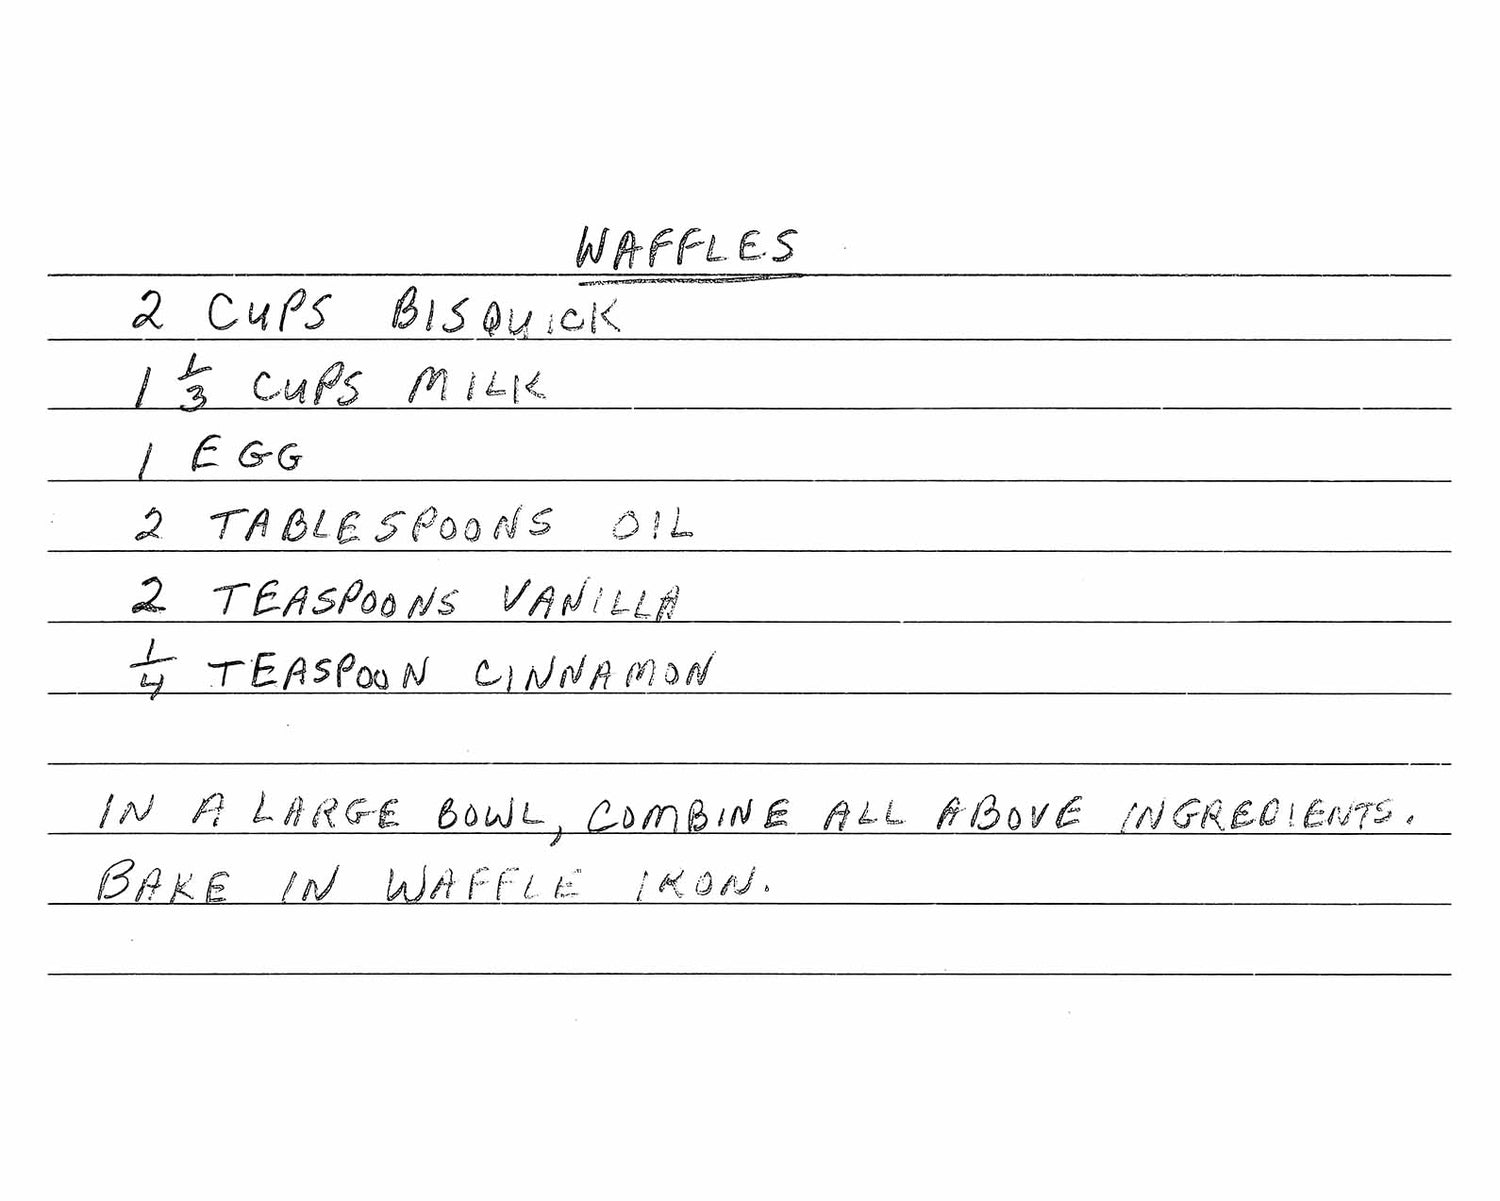 WAFFLES
2 CUPS BISQUICK
1 1/3 CUPS MILK
1 EGG
2 TABLESPOONS OIL
2 TEASPOONS VANILLA
1/4 TEASPOON CINNAMON
IN A LARGE BOWL, COMBINE ALL ABOVE INGREDIENTS.
BAKE IN WAFFLE IRON.